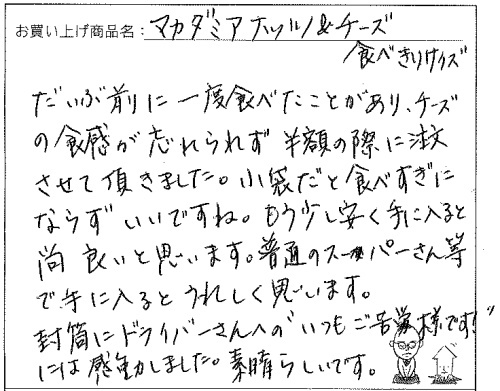 お買い上げ商品名：マカダミアナッツ&チーズ
食べきりサイズ
だいぶ前に一度食べたことがあり、チーズ
の食感が忘れられず 半額の際に注文
させて頂きました。小袋だと食べすぎに
ならず いいですね。もう少し安く手に入ると
尚 良いと思います。普通のスーパーさん等
で手に入ると うれしく思います。
封筒にドライバーさんへの“いつもご苦労様です!”
には感動しました。素晴らしいです。